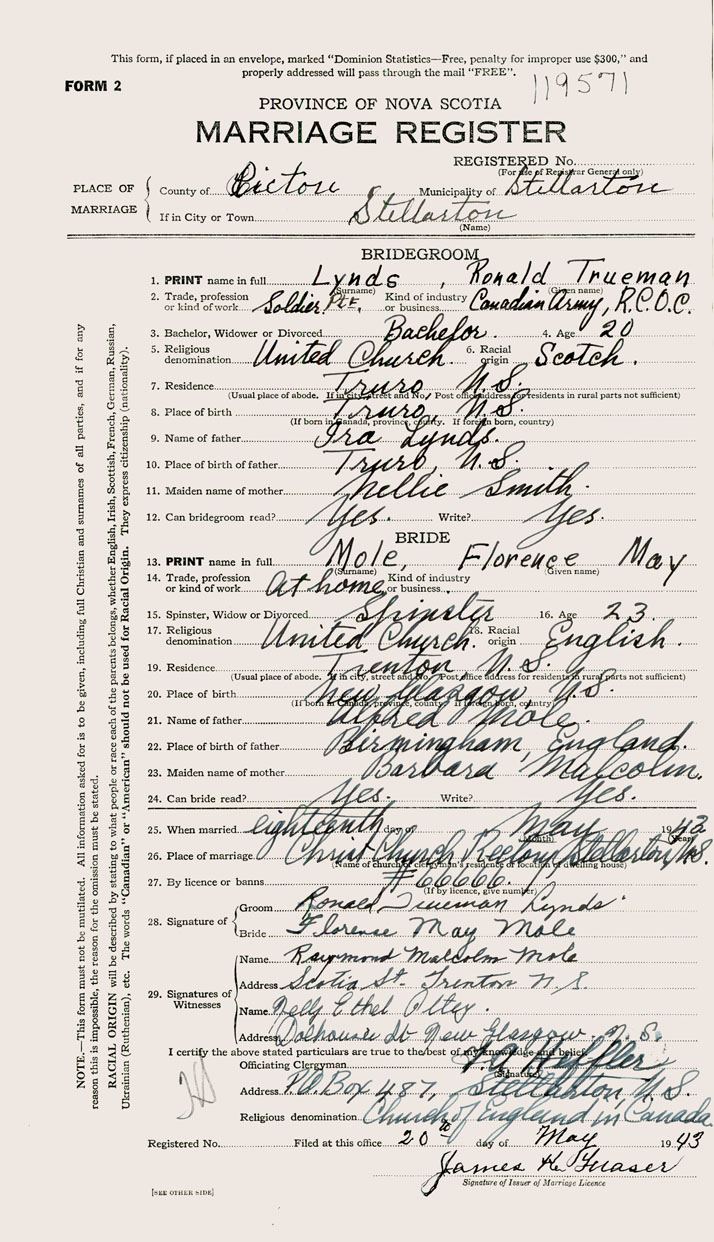 This form, if placed in an envelope, marked "Dominion Statistics—Free, penalty for improper use $300," and
properly addressed will pass through the mail "FREE".
FORM 2
119571
PROVINCE OF NOVA SCOTIA
MARRIAGE REGISTER
REGISTERED No.
(For use of Registrar General only)
PLACE OF MARRIAGE
County of Pictou Municipality of Stellarton
If in City or Town Stellarton
(Name)
BRIDEGROOM
1. PRINT name in full Lynds, Ronald Trueman
(Surname) (Given name)
2. Trade, profession or kind of work Soldier. Pte. Kind of industry or business Canadian Army, R.C.O.C.
3. Bachelor, Widower or Divorced Bachelor. 4. Age 20
5. Religious denomination United Church. 6. Racial origin Scotch.
7. Residence Truro, N.S.
(Usual place of abode. If in city, street and No. Post office address for residents in rural parts not sufficient)
8. Place of birth Truro, N.S.
(If born in Canada, province, county. If foreign born, country)
9. Name of father Ira Lynds.
10. Place of birth of father Truro, N.S.
11. Maiden name of mother Nellie Smith.
12. Can bridegroom read? Yes. Write? Yes.
BRIDE
13. PRINT name in full Mole, Florence May
(Surname) (Given name)
14. Trade, profession or kind of work At home Kind of industry or business
15. Spinster, Widow or Divorced Spinster 16. Age 23.
17. Religious denomination United Church. 18. Racial origin English.
19. Residence Trenton N.S.
(Usual place of abode. If in city, street and No. Post office address for residents in rural parts not sufficient)
20. Place of birth New Glasgow N.S.
(If born in Canada, province, county. If foreign born, country)
21. Name of father Alfred Mole.
22. Place of birth of father Birmingham, England.
23. Maiden name of mother Barbara Malcolm.
24. Can bride read? Yes. Write? Yes.
25. When married eighteenth day of May 1943
(Month) (Year)
26. Place of marriage Christ Church Rectory Stellarton, N.S.
(Name of church or clergyman's residence or location of dwelling house)
27. By licence or banns #66666.
(If by licence, give number)
28. Signature of
Groom Ronald Trueman Lynds
Bride Florence May Mole
29. Signatures of Witnesses
Name Raymond Malcolm Mole
Address Scotia St. Trenton N.S.
Name Nelly Ethel
Address Dalhousie St New Glasgow. N.S.
I certify the above stated particulars are true to the best of my knowledge and belief.
Officiating Clergyman
(Signature)
Address P.O. Box 487, Stellarton N.S.
Religious denomination Church of England in Canada.
Registered No. Filed at this office 20th day of May 1943
James H. Fraser
Signature of Issuer of Marriage Licence
[SEE OTHER SIDE]
NOTE.—This form must not be mutilated. All information asked for is to be given, including full Christian and surnames of all parties, and if for any
reason this is impossible, the reason for the omission must be stated.
RACIAL ORIGIN will be described by stating to what people or race each of the parents belongs, whether English, Irish, Scottish, French, German, Russian,
Ukrainian (Ruthenian), etc. The words "Canadian" or "American" should not be used for Racial Origin. They express citizenship (nationality).